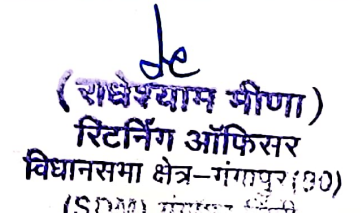 (राधेश्याम मीणा)
रिटर्निंग ऑफिसर
विधानसभा क्षेत्र-गंगापुर (90)
(SDM) गंगापुर सिटी